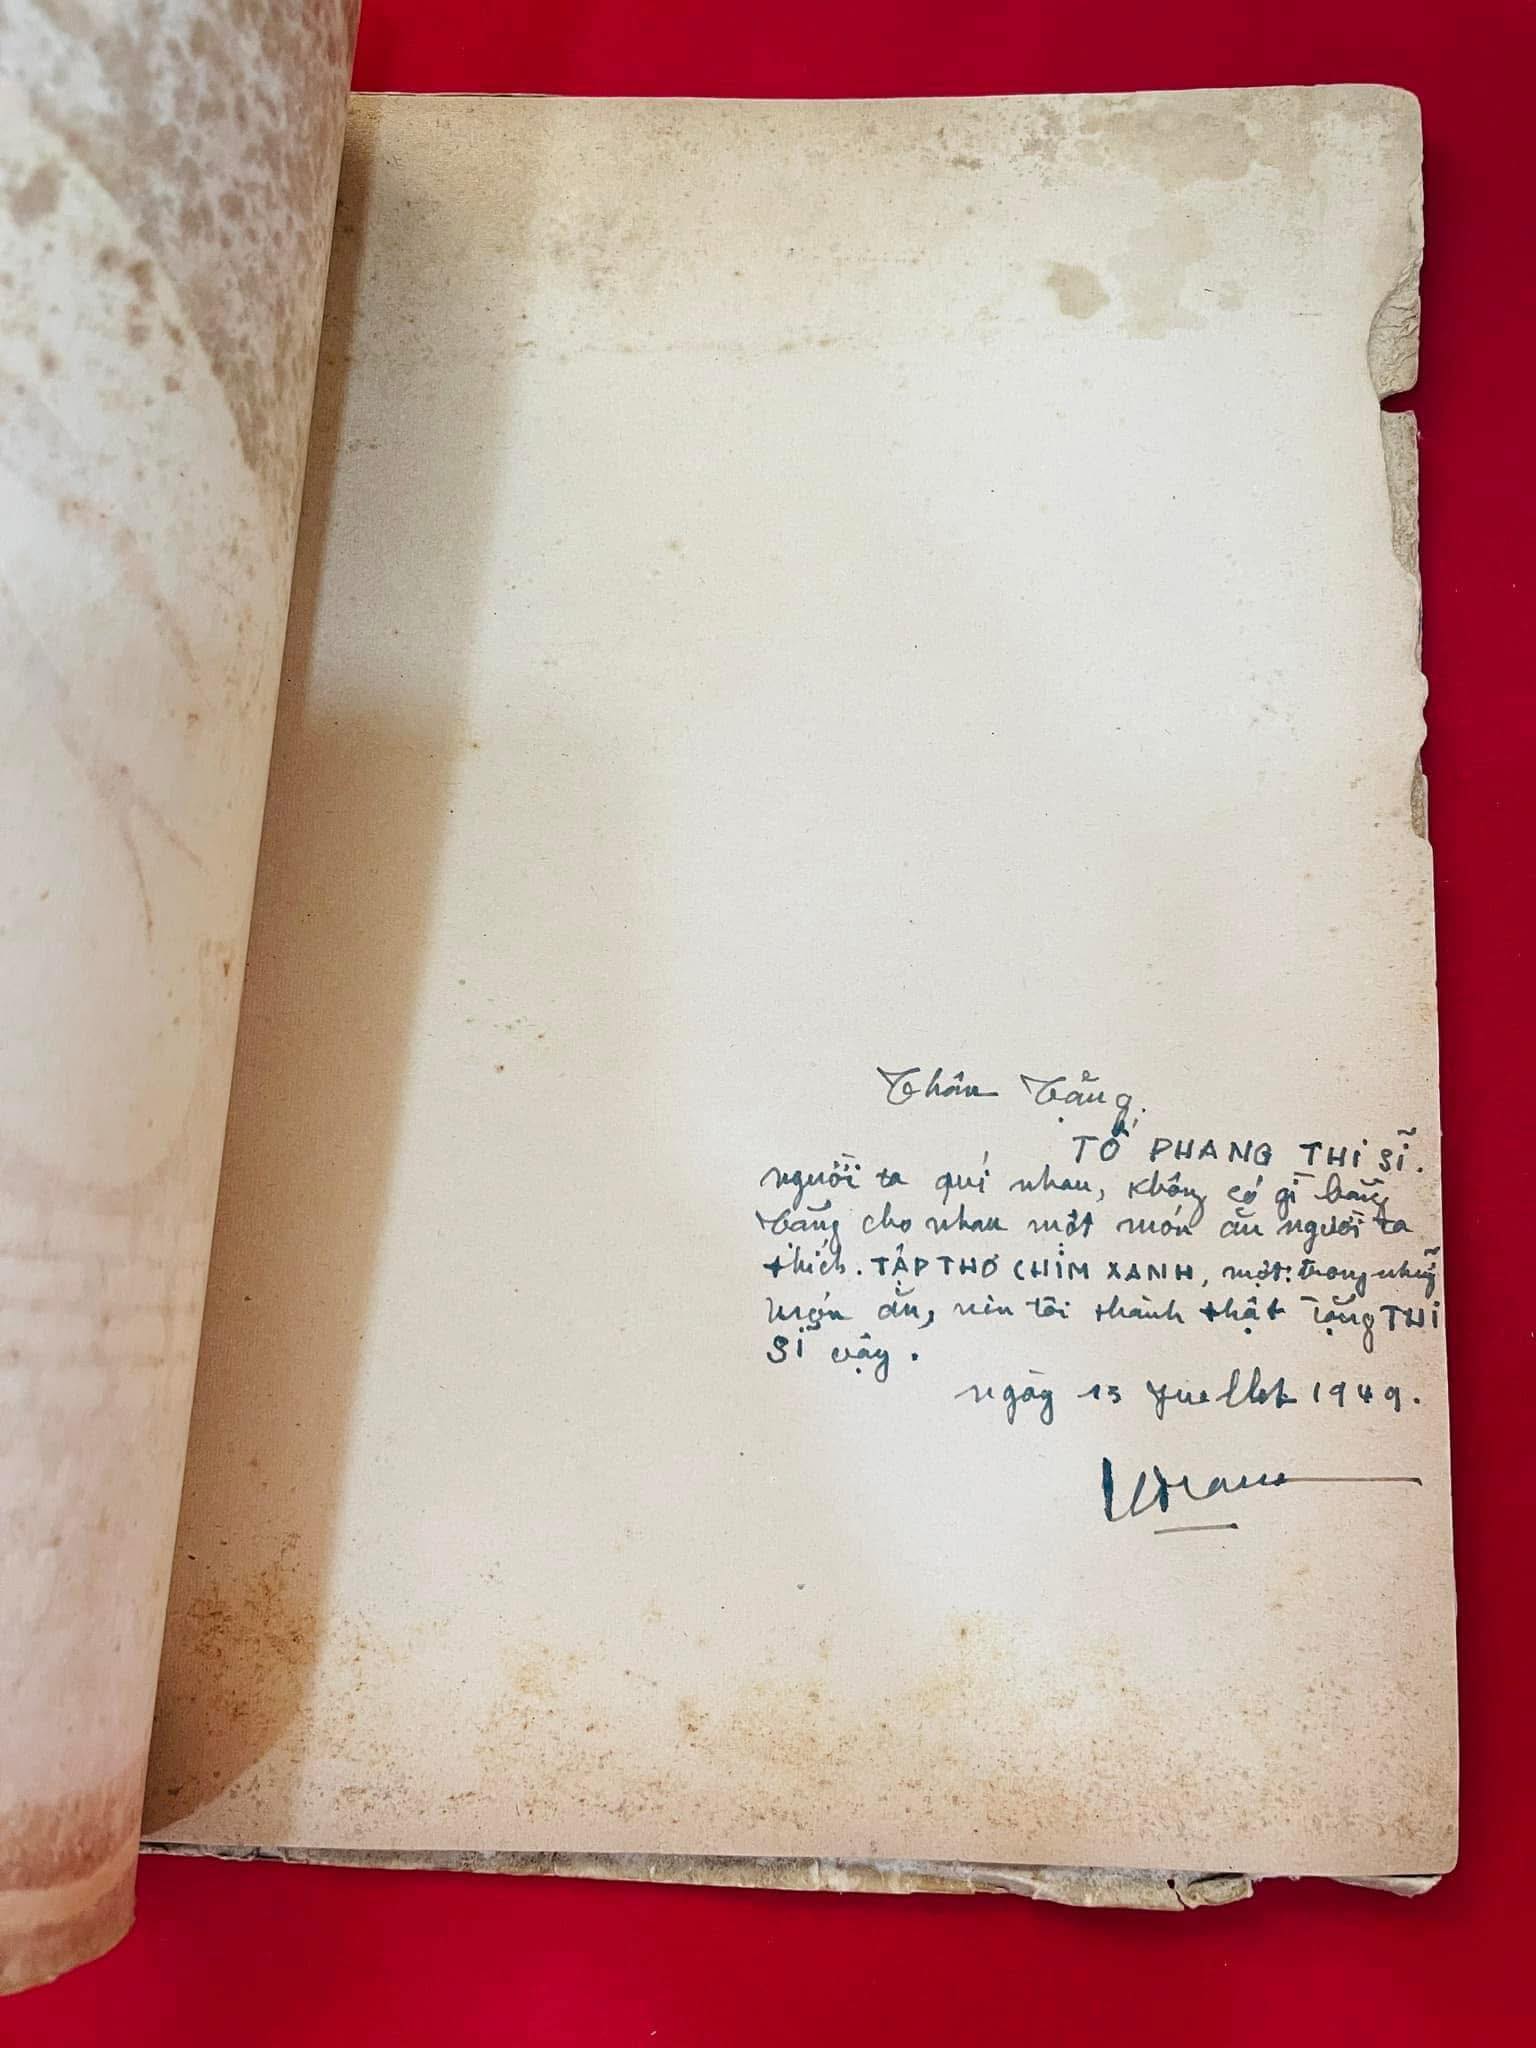 Thân tặng,
TỐ PHANG THI SĨ.
người ta quí nhau, không có gì bằng
tặng cho nhau một món ăn người ta
thích. TẬP THƠ CHIM XANH, một trong những
món ăn, nên tôi thành thật tặng THI
SĨ vậy.
ngày 15 Juellet 1949.